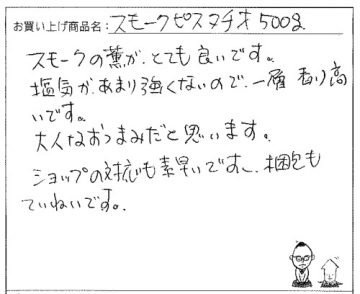 お買い上げ商品名:スモークピスタチオ 500g
スモークの薫が、とても良いです。
塩気があまり強くないので、一層 香り高
いです。
大人なおつまみだと思います。
ショップの対応も素早いですし、梱包も
ていねいです。